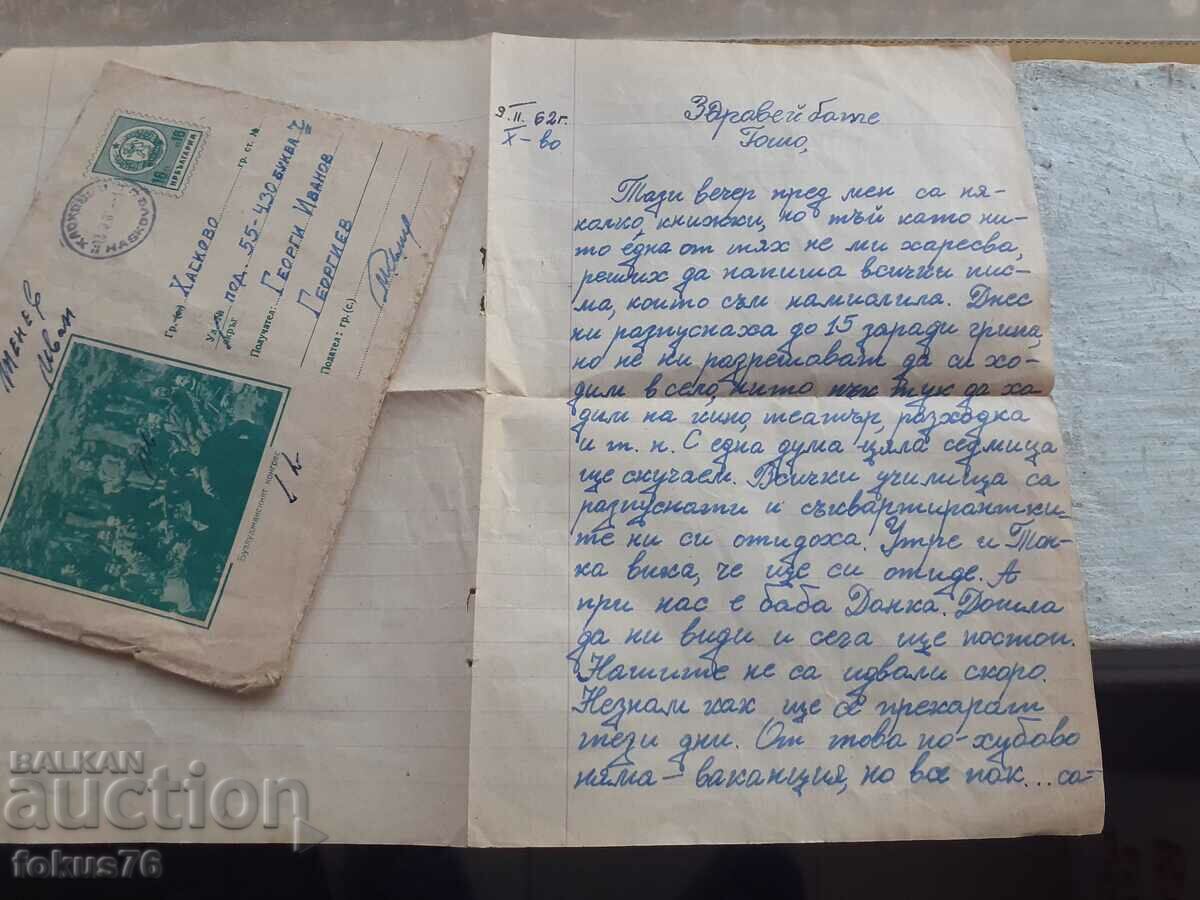 16 16
НР БЪЛГАРИЯ
HASKOVO
Гр. (с) Хасково гр. ст. №
Ул. под. 55-430 БУКВА
окръг
Получател: ГЕОРГИ ИВАНОВ
ГЕОРГИЕВ
Подател: гр. (с)
Иван
Бузлуджанският конгрес
9.II.62г.
Х-во
Здравей бате
Гошо,
Тази вечер пред мен са ня-
колко книжки, но тъй като ни-
то една от тях не ми харесва,
реших да напиша всички пис-
ма, които съм намислила. Днес
ни разпуснаха до 15 заради грипа,
но не ни разрешават да си хо-
дим в село, нито пък тук да хо-
дим на кино, театър, разходка
и т. н. С една дума цяла седмица
ще скучаем. Всички училища са
разпуснати и съквартирантки-
те ни си отидоха. Утре и Тон-
ка вика, че ще си отиде. А
при нас е баба Донка. Дошла
да ни види и сега ще постои.
Нашите не са идвали скоро.
Незнам как ще се прекарат
тези дни. От това по-хубаво
няма – ваканция, но все пак... са-
BALKAN
auction
fokus76